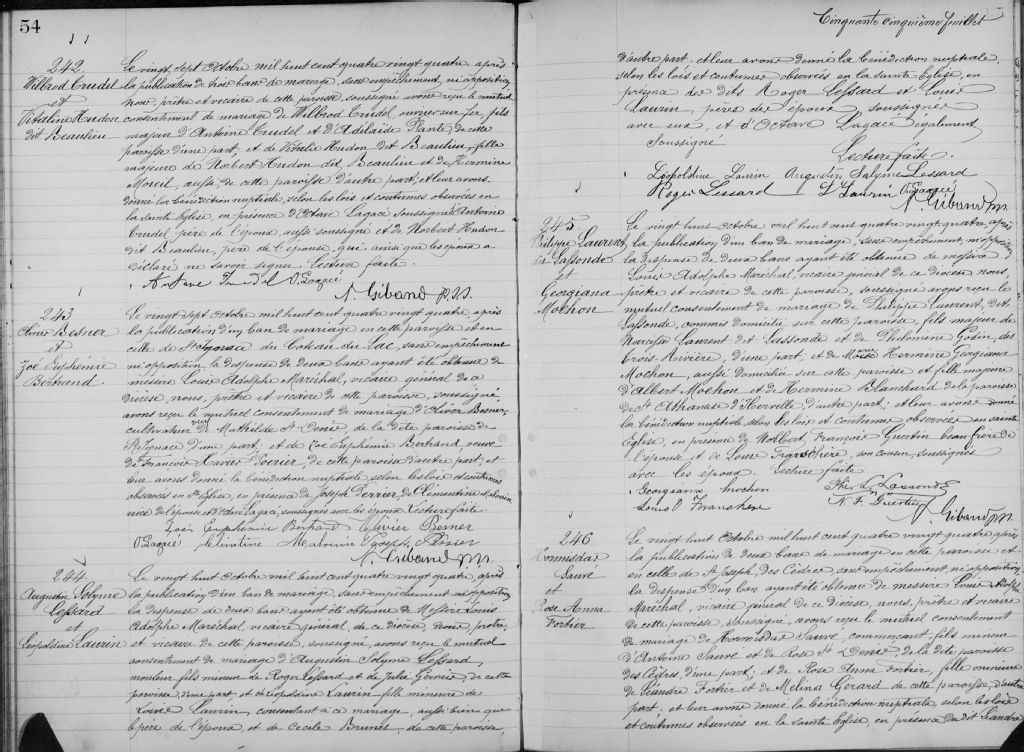 54
242
Wilbrod Trudel
et
Vitaline Hudon
dit Beaulieu
Le vingt sept Octobre mil huit cent quatre vingt quatre, après
la publication de trois bans de mariage, sans empêchement, ni opposition,
Nous, prêtre et vicaire de cette paroisse, soussigné avons reçu le mutuel
consentement de mariage de Wilbrod Trudel, ouvrier sur fer, fils
majeur d'Antoine Trudel et d'Adélaïde Plante de cette
paroisse d'une part, et de Vitalie Hudon dit Beaulieu, fille
majeure de Norbert Hudon dit Beaulieu et de Hermine
Moreil, aussi de cette paroisse d'autre part; et leur avons
donné la bénédiction nuptiale selon les lois et coutumes observées en
la Sainte Eglise, en présence d'Octave Lagacé soussigné Antoine
Trudel père de l'époux, aussi soussigné et de Norbert Hudon
dit Beaulieu, père de l'épouse, qui ainsi que les époux a
déclaré ne savoir signer. Lecture faite.
Antoine Trudel O. Lagacé
N. Giband
243
Olivier Besner
et
Zoé Euphémie
Bertrand
Le vingt sept Octobre mil huit cent quatre vingt quatre, après
la publication d'un ban de mariage en cette paroisse et en
celle de St Ignace du Coteau du Lac, sans empêchement
ni opposition, la dispense de deux bans ayant été obtenue de
messire Louis Adolphe Maréchal, vicaire général de ce
diocèse, nous, prêtre et vicaire de cette paroisse, soussigné,
avons reçu le mutuel consentement de mariage d'Olivier Besner,
cultivateur veuf de Mathilde St Denis, de la dite paroisse de
St Ignace d'une part; et de Zoé Euphémie Bertrand veuve
de François Xavier Poirier, de cette paroisse d'autre part, et
leur avons donné la bénédiction nuptiale selon les lois et coutumes
observées en Ste Eglise, en présence de Joseph Perrier, de Clémentine Malouin
nièce de l'épouse, et d'Octave Lagacé, soussignés avec les époux. Lecture faite.
Zoé Euphémie Bertrand Olivier Besner
O. Lagacé Malouin Joseph
N. Giband
244
Augustin Solyme
Lessard
et
Léopoldine Laurin
Le vingt huit Octobre mil huit cent quatre vingt quatre, après
la publication d'un ban de mariage, sans empêchement ni opposition
la dispense de deux bans ayant été obtenue de Messire Louis
Adolphe Maréchal, vicaire général, de ce diocèse, Nous, prêtre,
et vicaire de cette paroisse, soussigné, avons reçu le mutuel
consentement de mariage d'Augustin Solyme Lessard,
mouleur, fils mineur de Roger Lessard et de Julie Gervais, de cette
paroisse d'une part, et de Léopoldine Laurin fille mineure de
Louis Laurin, consentant à ce mariage, aussi bien que
le père de l'époux et de Cécile Brunet, de cette paroisse,
Cinquante cinquième feuillet
d'autre part. et leur avons donné la bénédiction nuptiale,
selon les lois et coutumes observées en la Sainte Eglise, en
présence des dits Roger Lessard et Louis
Laurin, pères des époux, soussignés
avec eux, et d'Octave Lagacé également
soussigné
Lecture faite.
Léopoldine Laurin Augustin Solyme Lessard
Roger Lessard L. Laurin O. Lagacé
N. Giband
245
Philippe Laurent
dit Lassonde
et
Georgiana
Mochon
Le vingt huit Octobre mil huit cent quatre vingt quatre, après
la publication d'un ban de mariage, sans empêchement, ni opposition,
la dispense de deux bans ayant été obtenue de messire
Louis Adolphe Maréchal, vicaire général de ce diocèse, nous,
prêtre et vicaire de cette paroisse, soussigné avons reçu le
mutuel consentement de mariage de Philippe Laurent, dit
Lassonde, commis domicilié sur cette paroisse, fils majeur de
Narcisse Laurent dit Lassonde et de Philomène Godin, des
Trois Rivières, d'une part; et de Marie Hermine Georgiana
Mochon, aussi domiciliée sur cette paroisse et fille majeure
d'Albert Mochon et de Hermine Blanchard de la paroisse
de St Athanase d'Iberville, d'autre part; et leur avons donné
la bénédiction nuptiale selon les lois et coutumes observées en sainte
Eglise, en présence de Norbert, François Guertin beau frère de
l'épouse et de Louis Franchère, son cousin, soussignés
avec les époux. Lecture faite
Georgiana Mochon Phi. L. Lassonde
Louis O. Franchère N. F. Guertin
N. Giband
246
Hormisdas
Sauvé
et
Rose Anna
Fortier
Le vingt huit Octobre mil huit cent quatre vingt quatre après
la publication de deux bans de mariage en cette paroisse et
en celle de St Joseph, des Cèdres sans empêchement ni opposition
la dispense d'un ban ayant été obtenue de messire Louis Adolphe
Maréchal, vicaire général de ce Diocèse, nous, prêtre et vicaire
de cette paroisse, soussigné, avons reçu le mutuel consentement
de mariage de Hormisdas Sauvé, commerçant, fils mineur
d'Antoine Sauvé et de Rose St Denis de la dite paroisse
des Cèdres, d'une part; et de Rose Anna Fortier, fille mineure
de Léandre Fortier et de Mélina Gérard de cette paroisse, d'autre
part. et leur avons donné la bénédiction nuptiale, selon les lois
et coutumes observées en la Sainte Eglise, en présence du dit Léandre